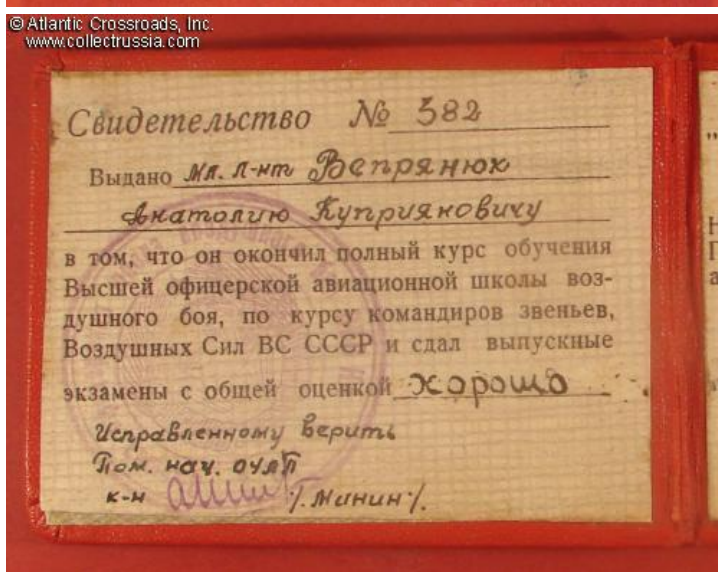 © Atlantic Crossroads, Inc.
www.collectrussia.com
Свидетельство № 382
Выдано Мл. л-нт Вепрянюк
Анатолию Куприяновичу
в том, что он окончил полный курс обучения
Высшей офицерской авиационной школы воз-
душного боя, по курсу командиров звеньев,
Воздушных Сил ВС СССР и сдал выпускные
экзамены с общей оценкой хорошо
Исправленному верить
Пом. нач.
к-н /.Минин./